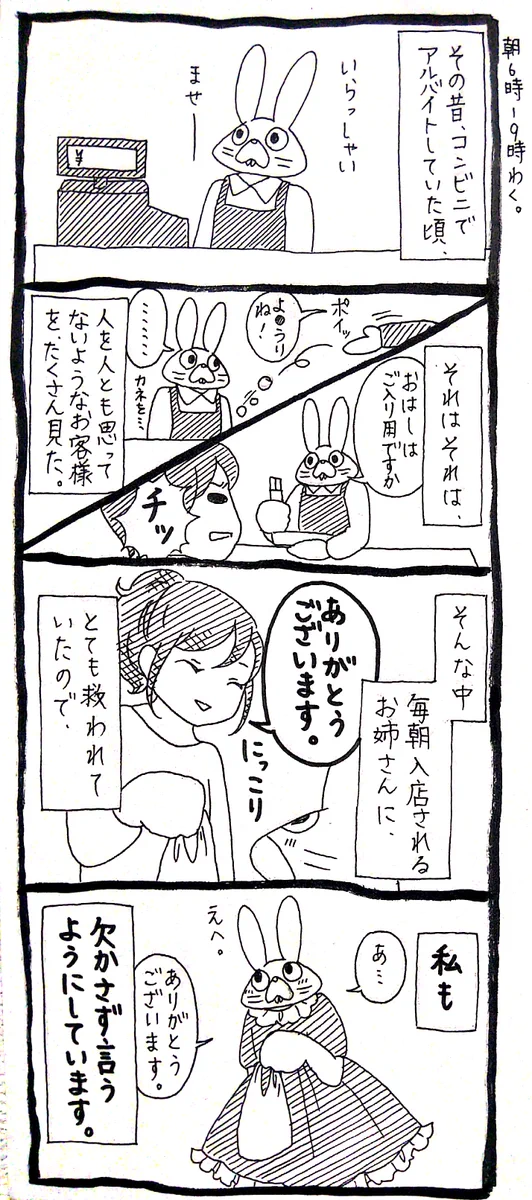 朝6時〜9時わく。
その昔、コンビニで
アルバイトしていた頃、
いらっしゃい
ませー
¥
それはそれは、
おはしは
ご入り用ですか
チッ
ポイッ
ね!
……
カネを…
人を人とも思って
ないようなお客様
を、たくさん見た。
そんな中
毎朝入店される
お姉さんに、
ありがとう
ございます。
にっこり
とても救われて
いたので、
私も
あ…
えへ。
ありがとう
ございます。
欠かさず言う
ようにしています。